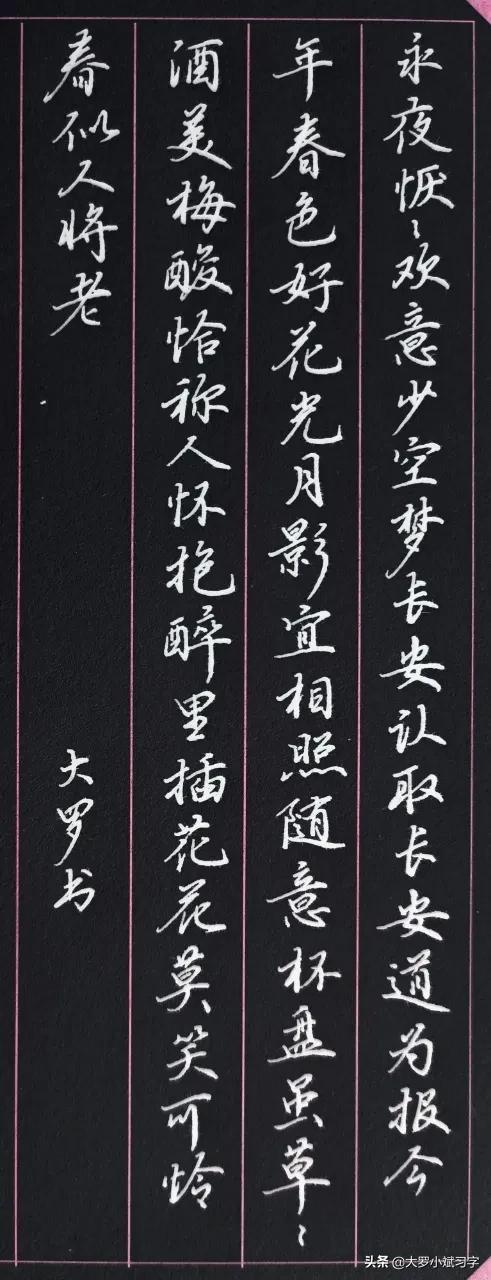 永夜恹〻欢意少空梦长安认取长安道为报今
年春色好花光月影宜相照随意杯盘虽草〻
酒美梅酸恰称人怀抱醉里插花花莫笑可怜
春似人将老
大罗书
头条 @大罗小斌习字